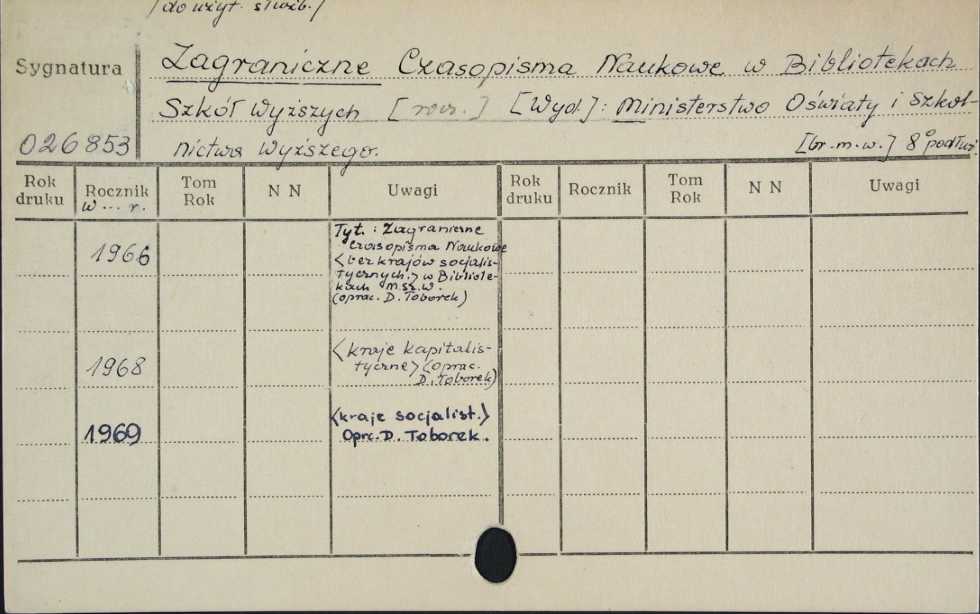 /do użyt. służb./
Sygnatura
Zagraniczne Czasopisma Naukowe w Bibliotekach
Szkół Wyższych [rocz.] [Wyd]: Ministerstwo Oświaty i Szkol-
026853 nictwa Wyższego. [br.m.w.] 8° podłuż.
Rok druku Rocznik Tom Rok N N Uwagi Rok druku Rocznik Tom Rok N N Uwagi
w ... r.
1966 Tyt.: Zagraniczne
czasopisma Naukowe
<bez krajów socjalis-
tycznych.> w Bibliote-
kach m.sz.w.
(oprac. D. Toborek)
1968 <kraje kapitalis-
tyczne> (oprac.
D. Toborek)
1969 <kraje socjalist.>
Oprc. D. Toborek.